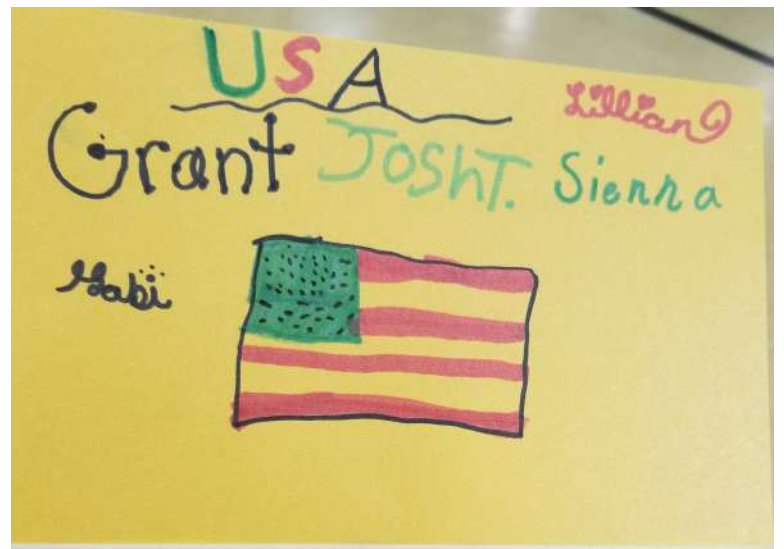 USA
Lillian
Grant JoshT. Sienna
Gabi